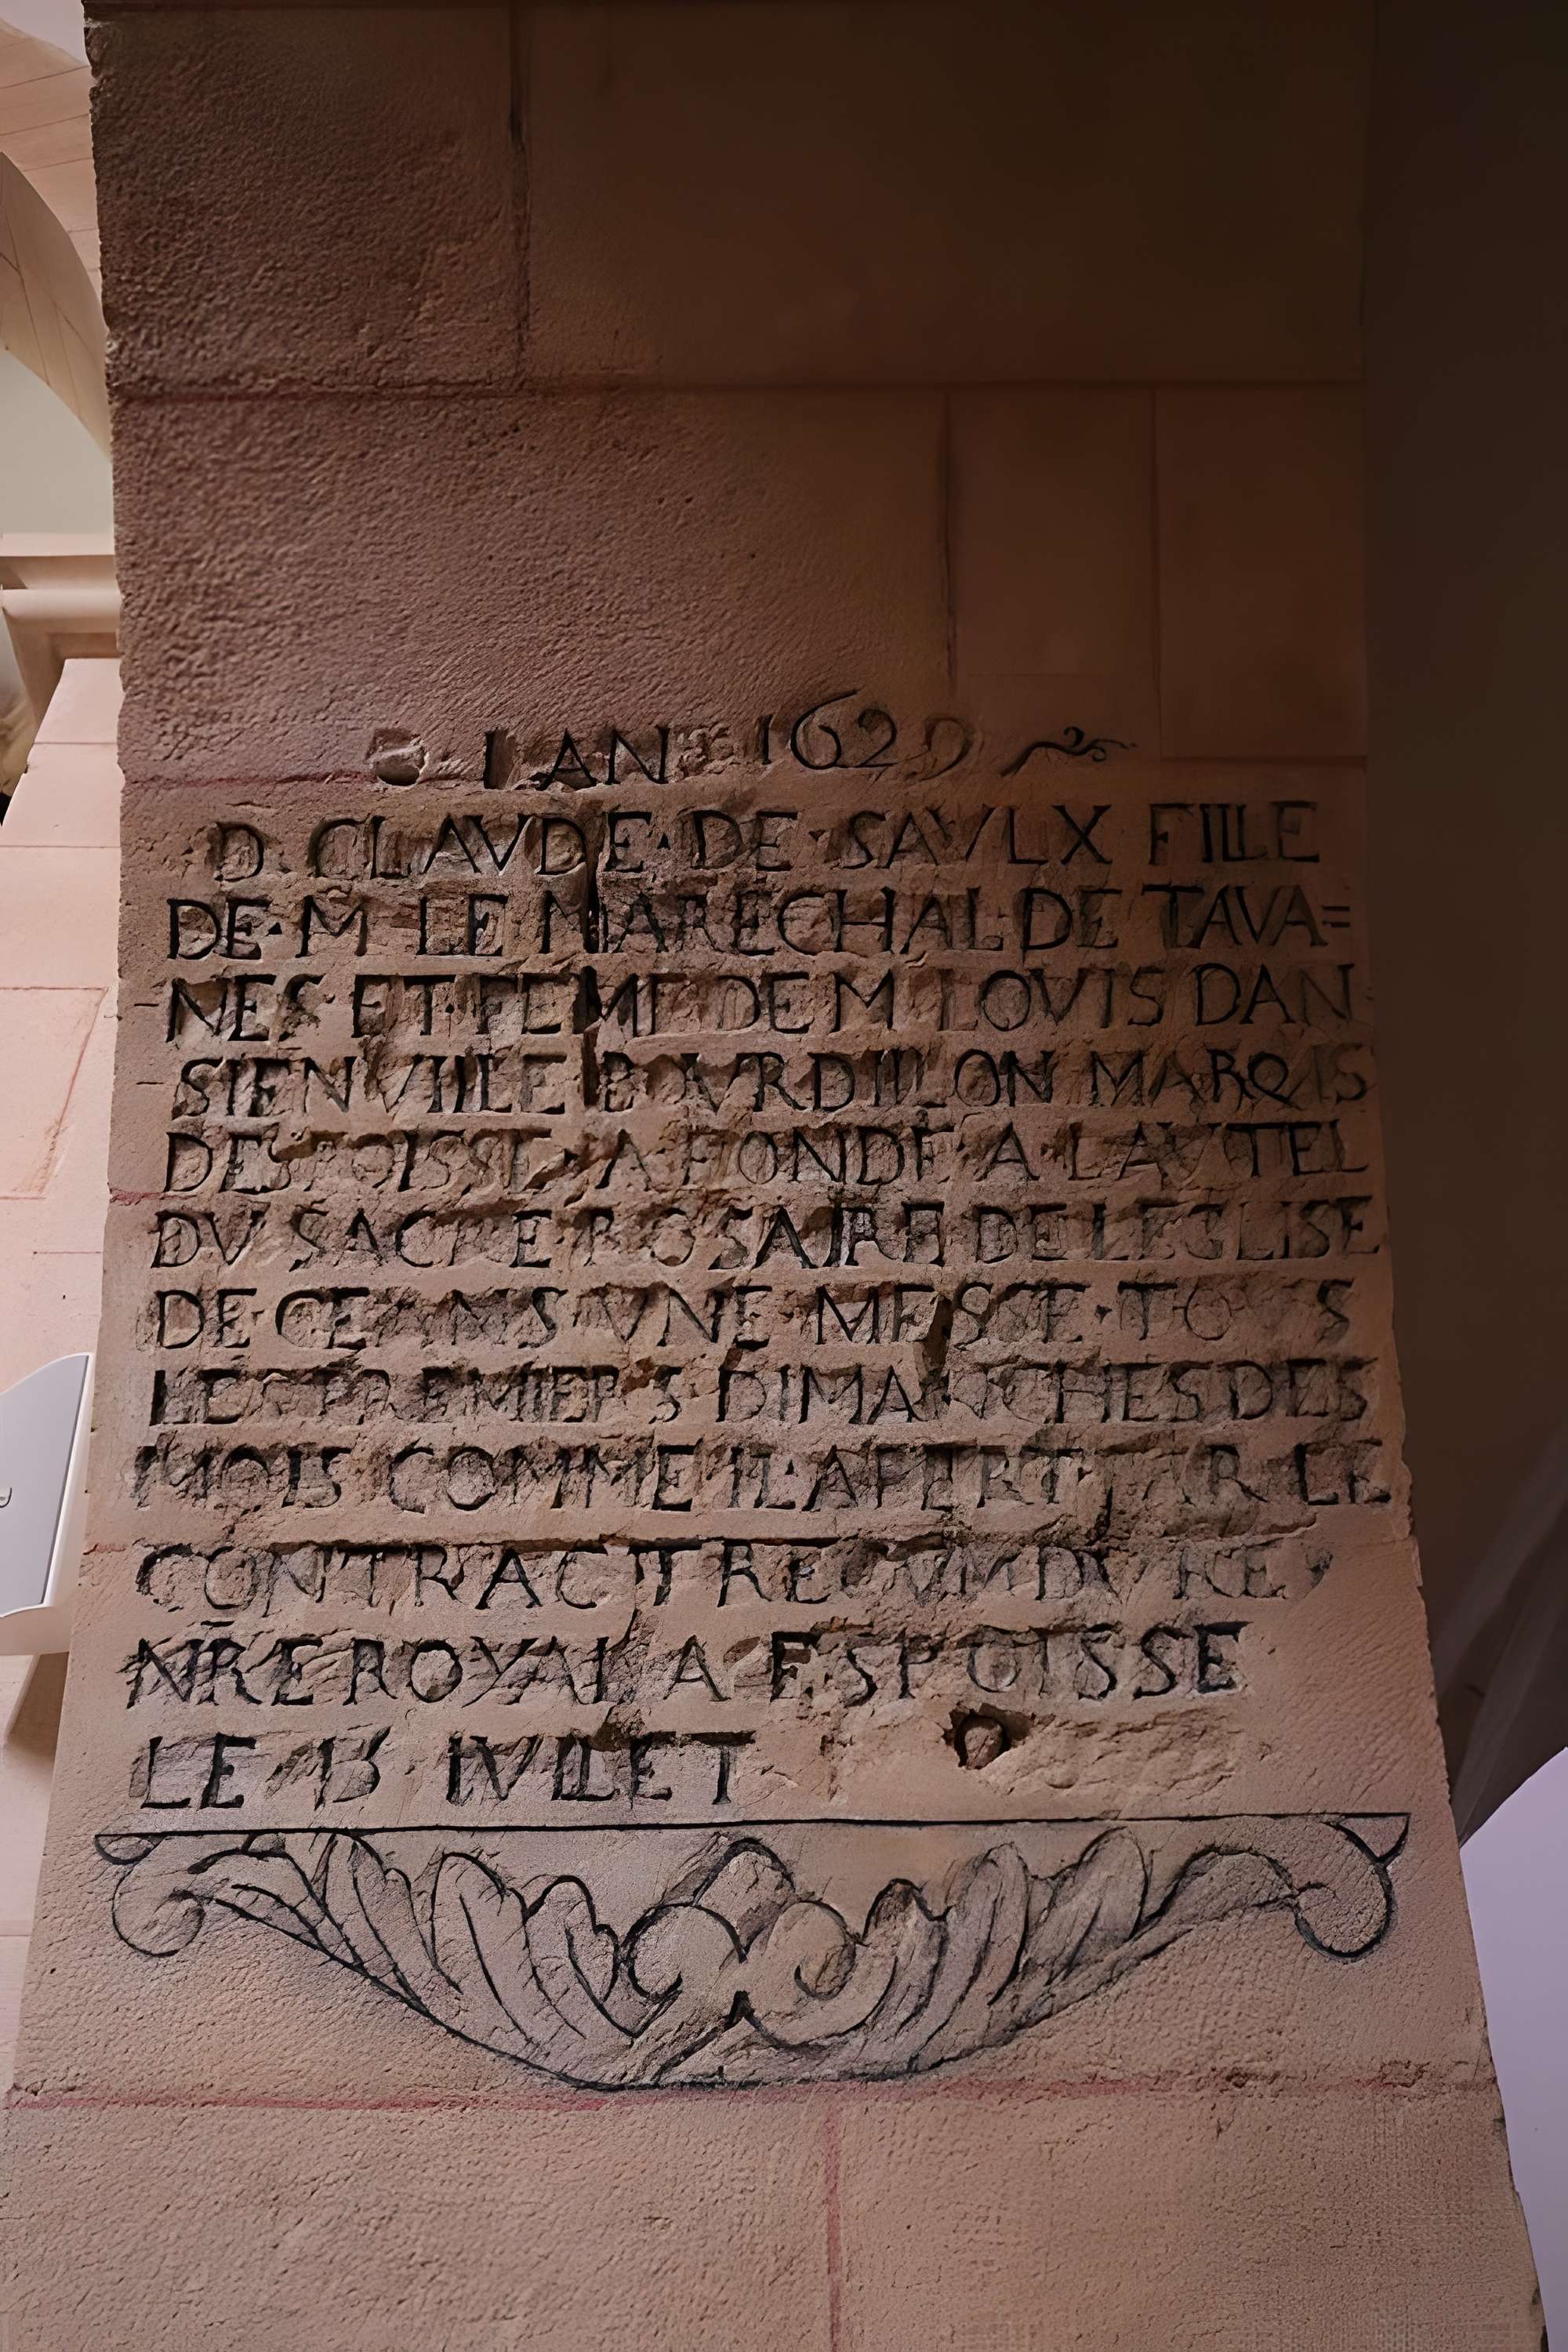 IAN 1629
D. CLAVDE · DE · SAVLX FILLE
DE · M LE MARECHAL · DE TAVA=
NES · ET · FEME DE M LOVIS DAN
SIENVILLE BOVRDILLON MARQVIS
DESPOISSE · A FONDÉ A LAVTEL
DV SACRE ROSAIRE DE LEGLISE
DE · CEANS VNE · MESSE · TOVS
LES PREMIERS DIMANCHES DES
MOIS COMME IL · APERT · PAR LE
CONTRACT RECV
ROYAL A ESPOISSE
LE IVILLET